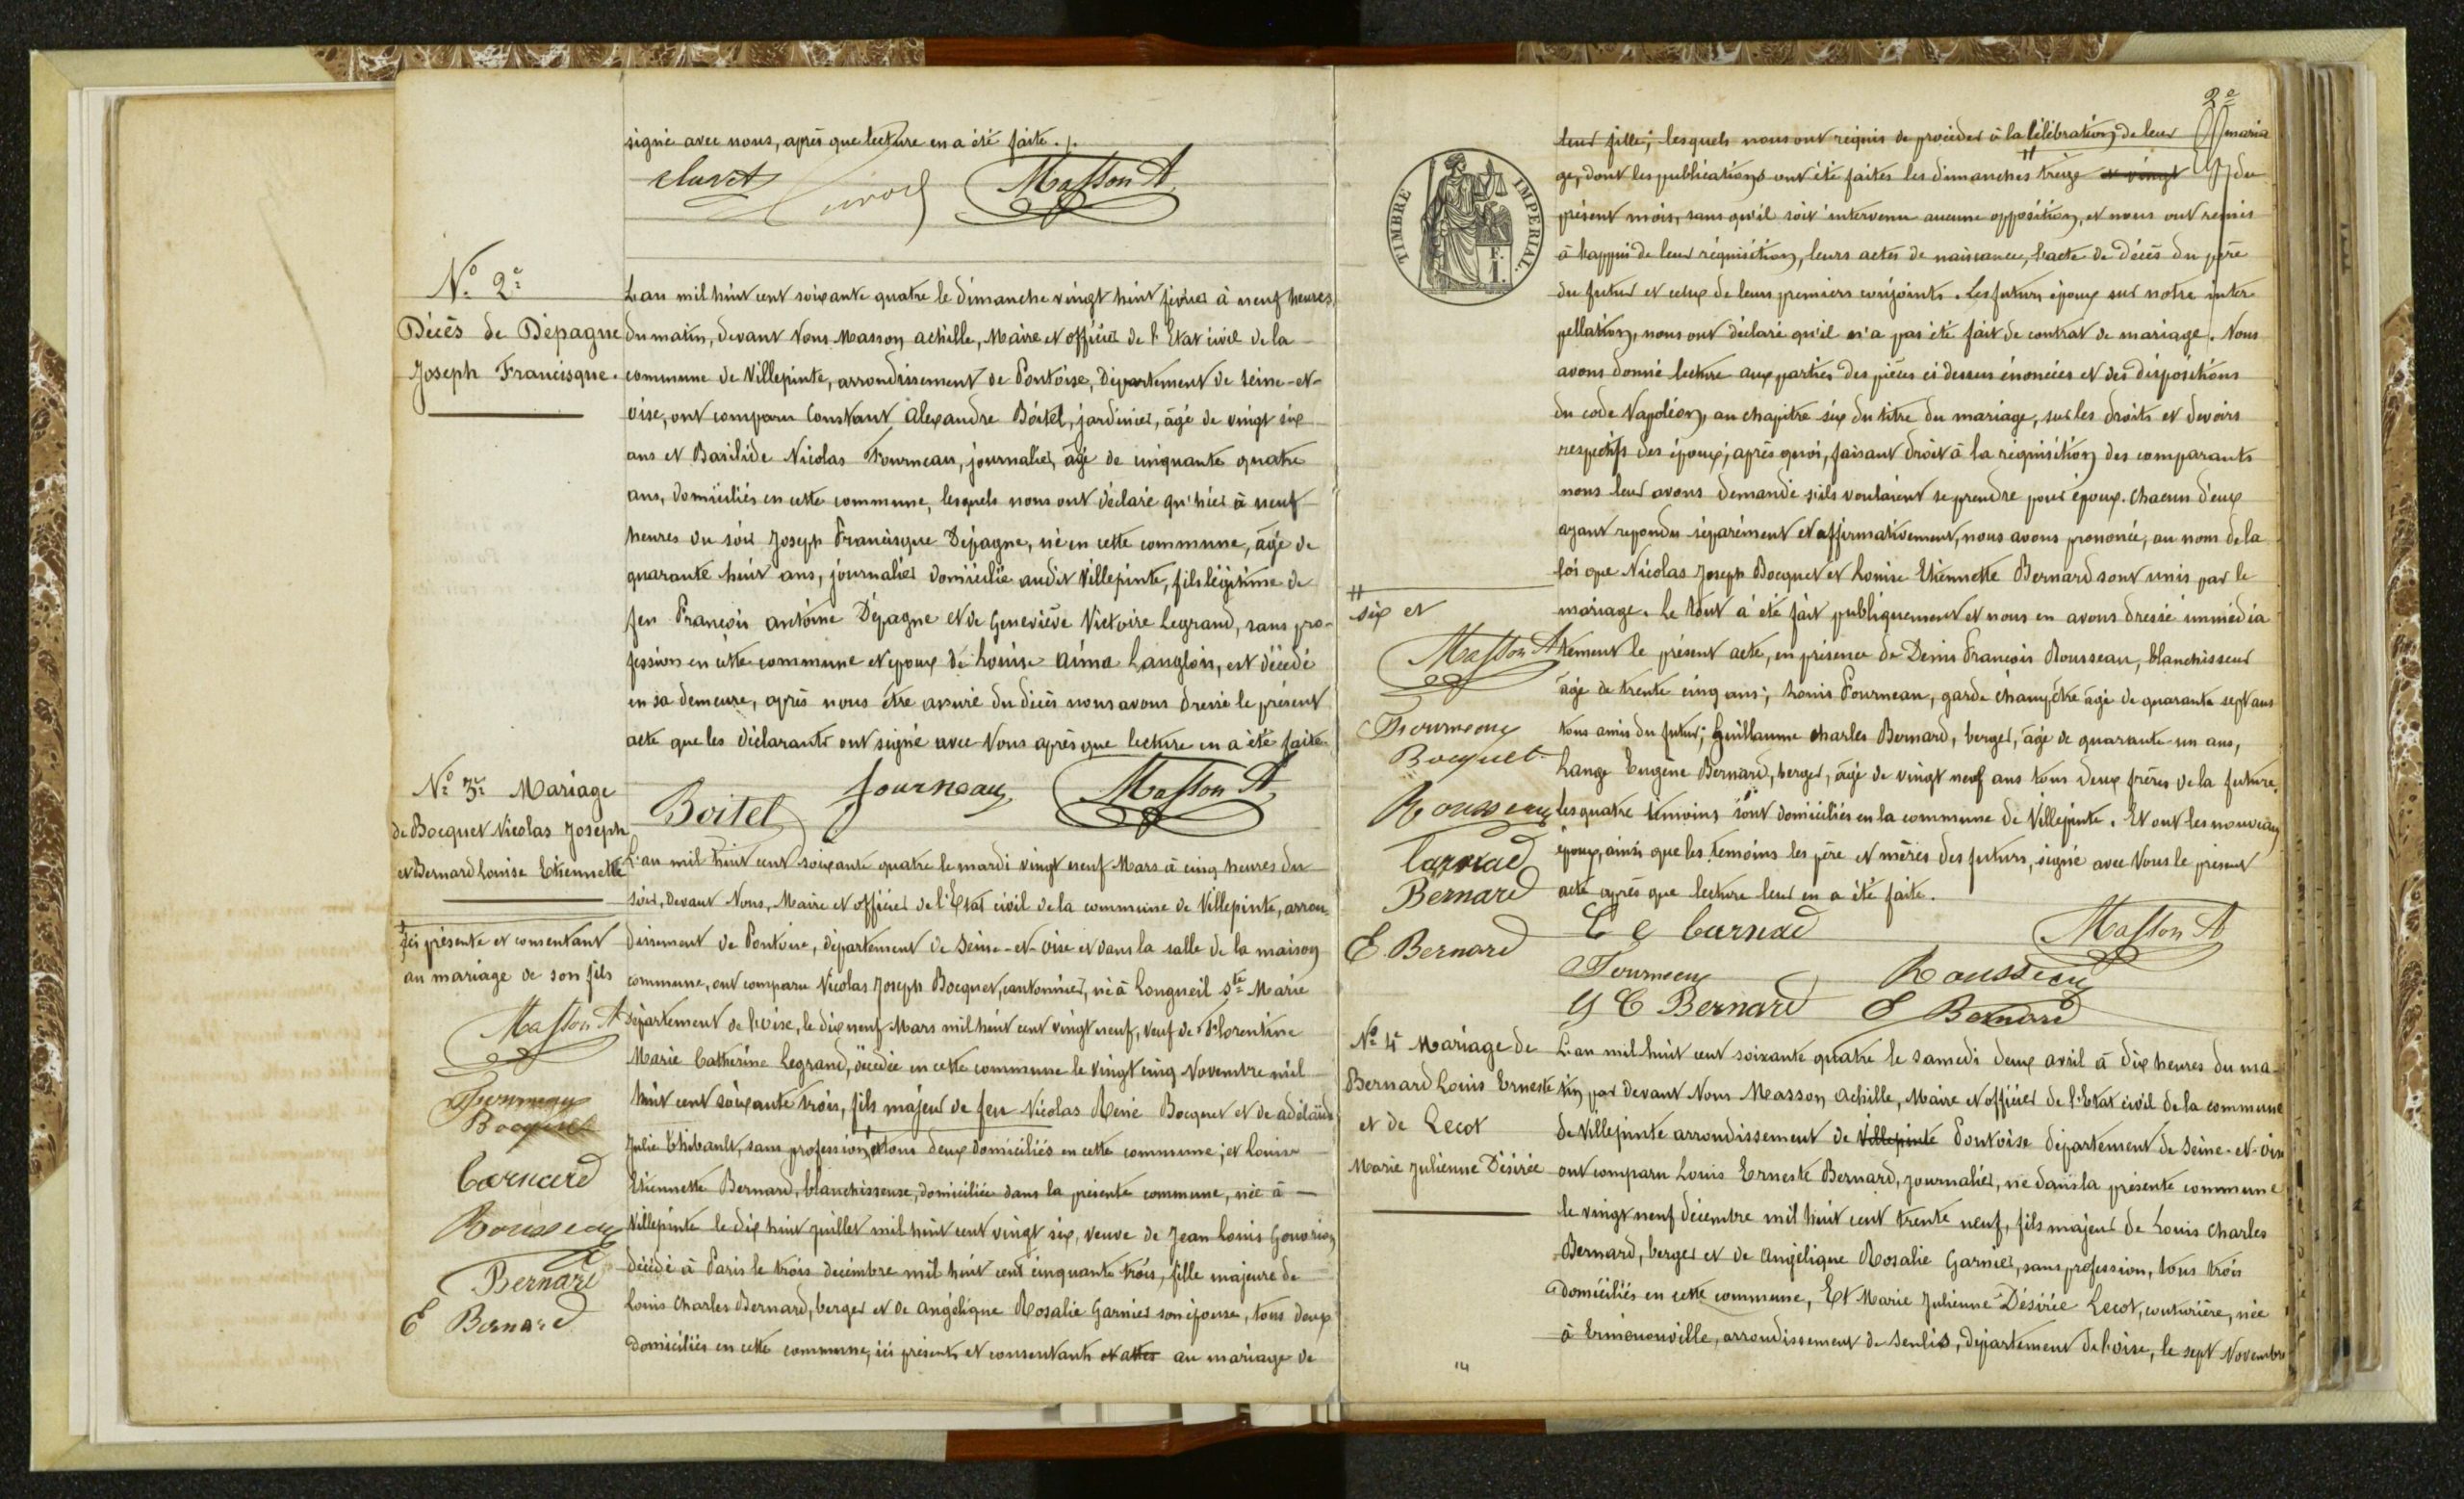 signé avec nous, après que lecture en a été faite ./.
clavet
Masson A
N° 2e
Décès de Dépagne
Joseph Francisque.
L'an mil huit cent soixante quatre le dimanche vingt huit février à neuf heures
du matin, devant Nous Masson achille, Maire et officier de l'Etat civil de la
commune de Villepinte, arrondissement de Pontoise, Département de Seine-et-
oise, ont comparu Constant Alexandre Boitel, jardinier, âgé de vingt six
ans et Basilide Nicolas Fourneau, journalier, âgé de cinquante quatre
ans, domiciliés en cette commune, lesquels nous ont déclaré qu'hier à neuf
heures du soir Joseph Francisque Dépagne, né en cette commune, âgé de
quarante huit ans, journalier domicilié audit Villepinte, fils légitime de
feu François antoine Dépagne et de Geneviève Victoire Legrand, sans pro-
fession en cette commune et époux de Louise aima Langlois, est décédé
en sa demeure, après nous être assuré du décès nous avons dressé le présent
acte que les déclarants ont signé avec Nous après que lecture en a été faite.
Boitel fourneau Masson A
N° 3e Mariage
de Bocquet Nicolas Joseph
et Bernard Louise Etiennette
L'an mil huit cent soixante quatre le mardi vingt neuf Mars à cinq heures du
soir, devant Nous, Maire et officier de l'Etat civil de la commune de Villepinte, arron-
dissement de Pontoise, département de Seine-et-oise et dans la salle de la maison
commune, ont comparu Nicolas Joseph Bocquet, cantonnier, né à Longueil Ste Marie
département de l'oise, le dix neuf Mars mil huit cent vingt neuf, veuf de Florentine
Marie Catherine Legrand, décédée en cette commune le vingt cinq Novembre mil
huit cent soixante trois, fils majeur de feu Nicolas René Bocquet et de adélaïde
Julie Thibault, sans profession, et tous deux domiciliés en cette commune; et Louise
Etiennette Bernard, blanchisseuse, domiciliée dans la présente commune, née à
Villepinte le dix huit juillet mil huit cent vingt six, veuve de Jean Louis Gouvrion
décédé à Paris le trois décembre mil huit cent cinquante trois, fille majeure de
Louis Charles Bernard, berger et de angélique Rosalie Garnier son épouse, tous deux
domiciliés en cette commune, ici présents et consentants au mariage de
ici présente et consentant
au mariage de son fils
Masson A
Fourneau
Bocquet
Bernard
Rousseau
Bernard
E Bernard
2e
TIMBRE IMPERIAL.
F. 1.
leur fille; lesquels nous ont requis de procéder à la célébration de leur maria
ge, dont les publications ont été faites les dimanches # treize et vingt du
présent mois, sans qu'il soit intervenu aucune opposition, et nous ont remis
à l'appui de leur réquisition, leurs actes de naissance, l'acte de décès du père
du futur et celui de leurs premiers conjoints. Les futurs époux sur notre inter-
pellation, nous ont déclaré qu'il n'a pas été fait de contrat de mariage. Nous
avons donné lecture aux parties des pièces ci dessus énoncées et des dispositions
du code Napoléon, au chapitre six du titre du mariage, sur les droits et devoirs
respectifs des époux; après quoi, faisant droit à la réquisition des comparants
nous leur avons demandé s'ils voulaient se prendre pour époux. Chacun d'eux
ayant repondu séparément et affirmativement, nous avons prononcé, au nom de la
loi que Nicolas Joseph Bocquet et Louise Etiennette Bernard sont unis par le
mariage. Le tout a été fait publiquement et nous en avons dressé immédia
tement le présent acte, en présence de Denis François Rousseau, blanchisseur
âgé de trente cinq ans; Louis Fourneau, garde champêtre âgé de quarante sept ans
tous amis du futur; Guillaume Charles Bernard, berger, âgé de quarante un ans,
Lange Eugène Bernard, berger, âgé de vingt neuf ans tous deux frères de la future,
les quatre témoins sont domiciliés en la commune de Villepinte. Et ont les nouveaux
époux, ainsi que les témoins les père et mères des futurs, signé avec Nous le présent
acte après que lecture leur en a été faite.
# six et
Masson A
Fourneau
Bocquet
Rousseau
Bernard
E Bernard
L E Bernard Masson A
Fourneau Rousseau
G C Bernard E Bernard
N° 4e Mariage de
Bernard Louis Erneste
et de Lecot
Marie Julienne Désirée
L'an mil huit cent soixante quatre le samedi deux avril à dix heures du ma-
tin, par devant Nous Masson Achille, Maire et officier de l'Etat civil de la commune
de Villepinte arrondissement de Villepinte Pontoise département de Seine-et-oise
ont comparu Louis Erneste Bernard, journalier, né dans la présente commune
le vingt neuf décembre mil huit cent trente neuf, fils majeur de Louis Charles
Bernard, berger et de Angélique Rosalie Garnier, sans profession, tous trois
domiciliés en cette commune, Et Marie Julienne Désirée Lecot, couturière, née
à Ermenonville, arrondissement de Senlis, département de l'oise, le sept Novembre